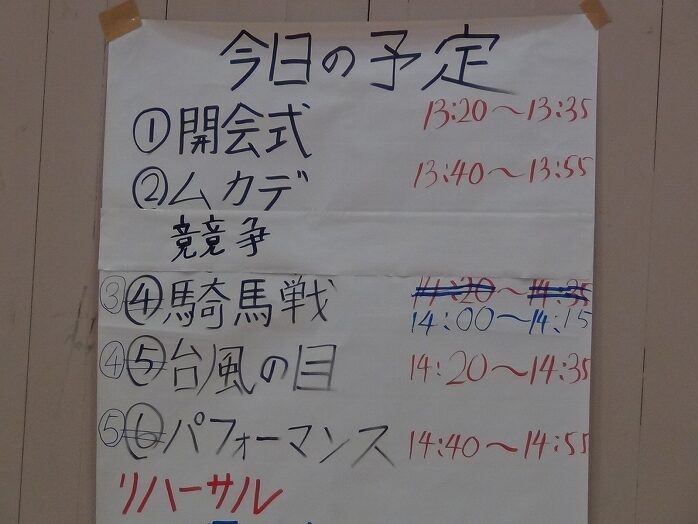 今日の予定
①開会式 13:20～13:35
②ムカデ 13:40～13:55
競争
③④騎馬戦 14:20～14:35
14:00～14:15
④⑤台風の目 14:20～14:35
⑤⑥パフォーマンス 14:40～14:55
リハーサル